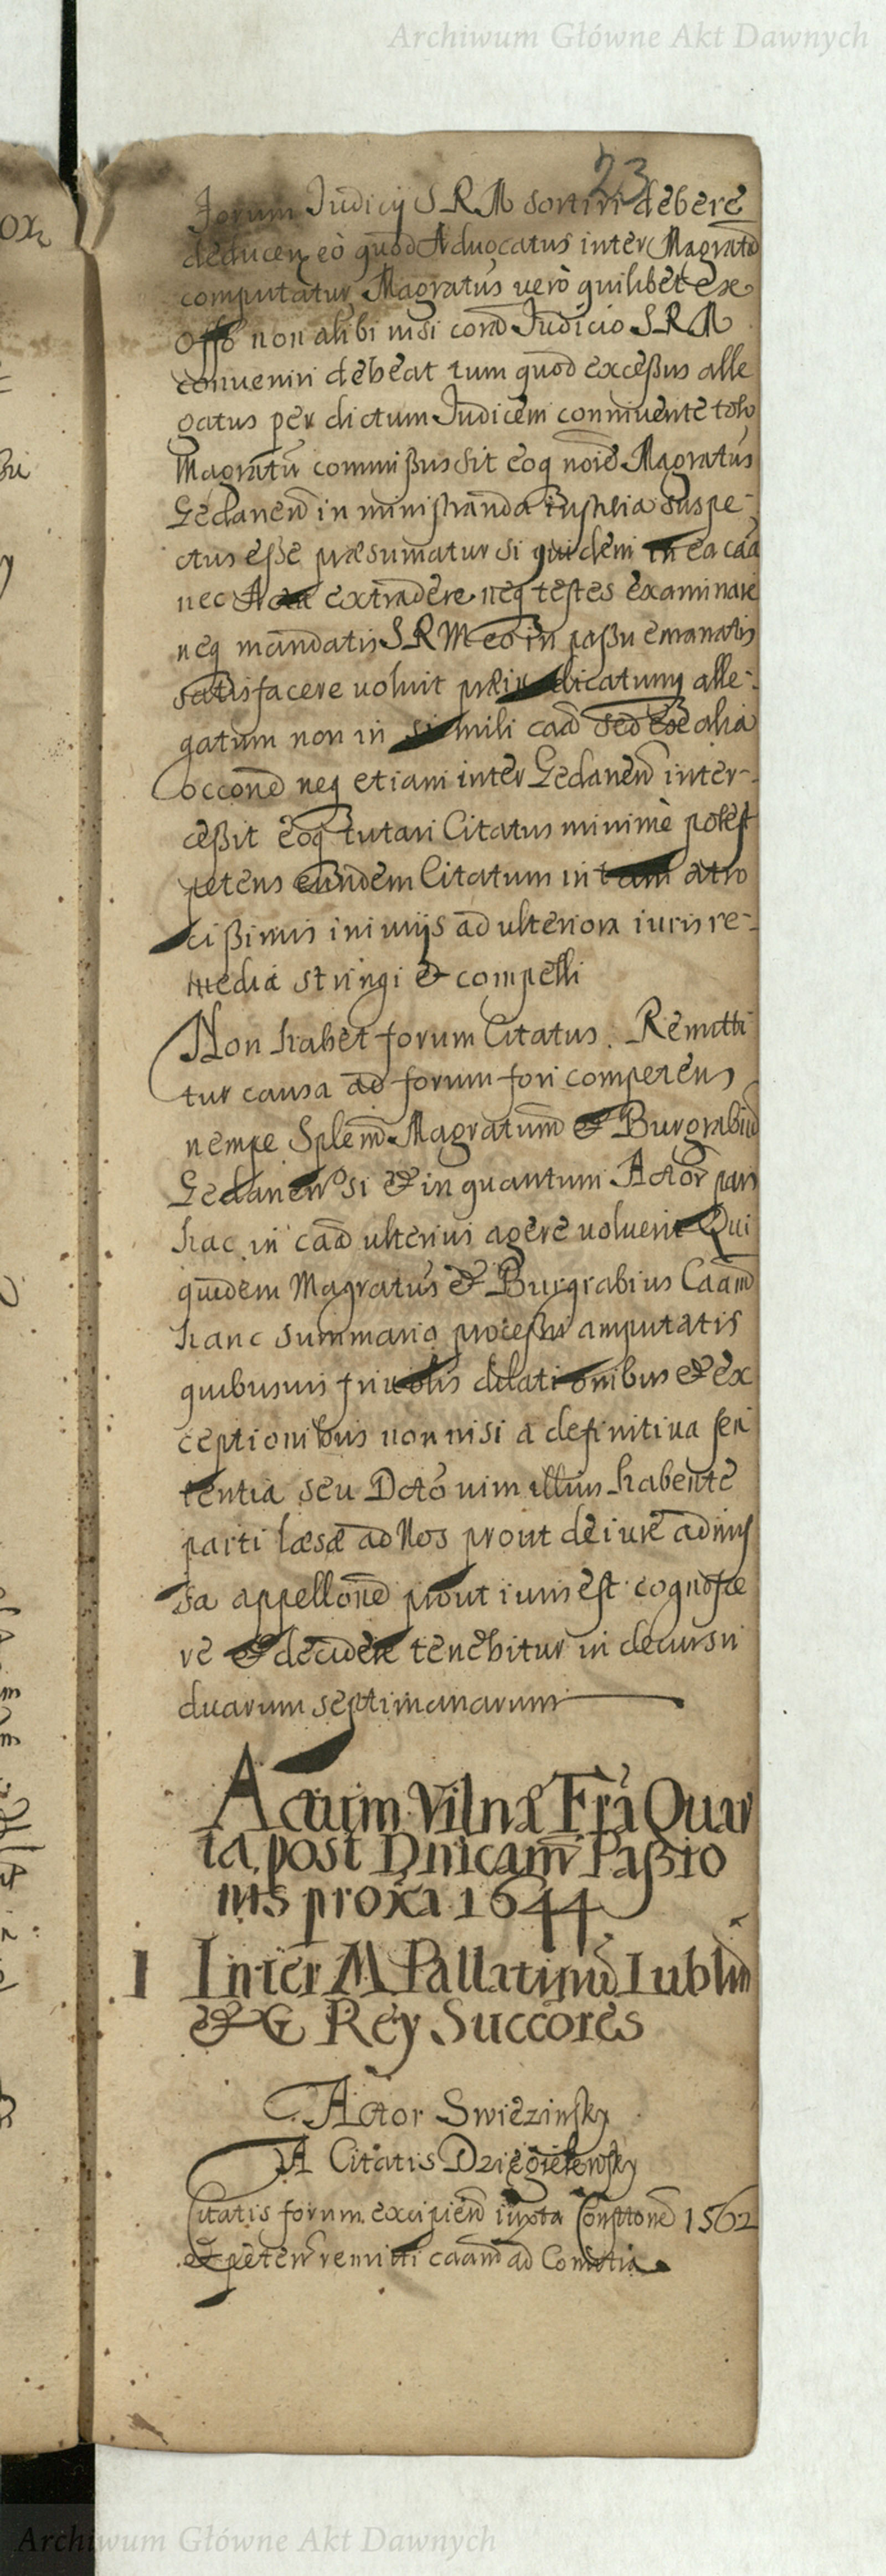 Archiwum Główne Akt Dawnych
23
Forum Judicij S R M sortiri debere
deducen eò quod Aduocatus inter Magratū
computatur Magratus verò quilibet ex
Offo non alibi nisi corā Judicio S R M
conueniri debeat tum quod exceßus alle
gatus per dictum Judicem conniuente toto
Magratū commißus sit eoq noīe Magratus
Gedanen in ministranda iustitia suspe-
ctus eße præsumatur si quidem in ea caā
nec Acta extradere neq testes examinare
neq mandatis S R M eo in paßu emanatis
satisfacere voluit præiudicatum alle-
gatum non in simili caā sed ex alia
occone neq etiam inter Gedanen inter-
ceßit eoq tutari Citatus minimè potest
petens eundem Citatum in tam atro
cißimis iniurijs ad ulteriora iuris re-
media stringi & compelli
Non habet forum Citatus. Remitti
tur causa ad forum fori competens
nempe Splem Magratum & Burgrabiū
Gedanen si & in quantum Actor pars
hac in caā ulterius agere voluerit Qui
quidem Magratus & Burgrabius Caam
hanc summario proceßu amputatis
quibusuis friuolis dilationibus & ex
ceptionibus non nisi a definitiua sen
tentia seu Dcto vim illius habente
parti læsæ ad Nos prout de iure admis
sa appellone prout iuris est cognosce
re & decidere tenebitur in decursu
duarum septimanarum
Actum Vilnæ Fria Quar
ta post Dnicam Paßio
nis proxa 1644
1 Inter M Pallatinū Lublin
& G Rey Succores
Actor Swiezinsky
A Citatis Dziegielewsky
Citatis forum excipien iuxta Constone 1562
et peten remitti caam ad Comitia
Archiwum Główne Akt Dawnych